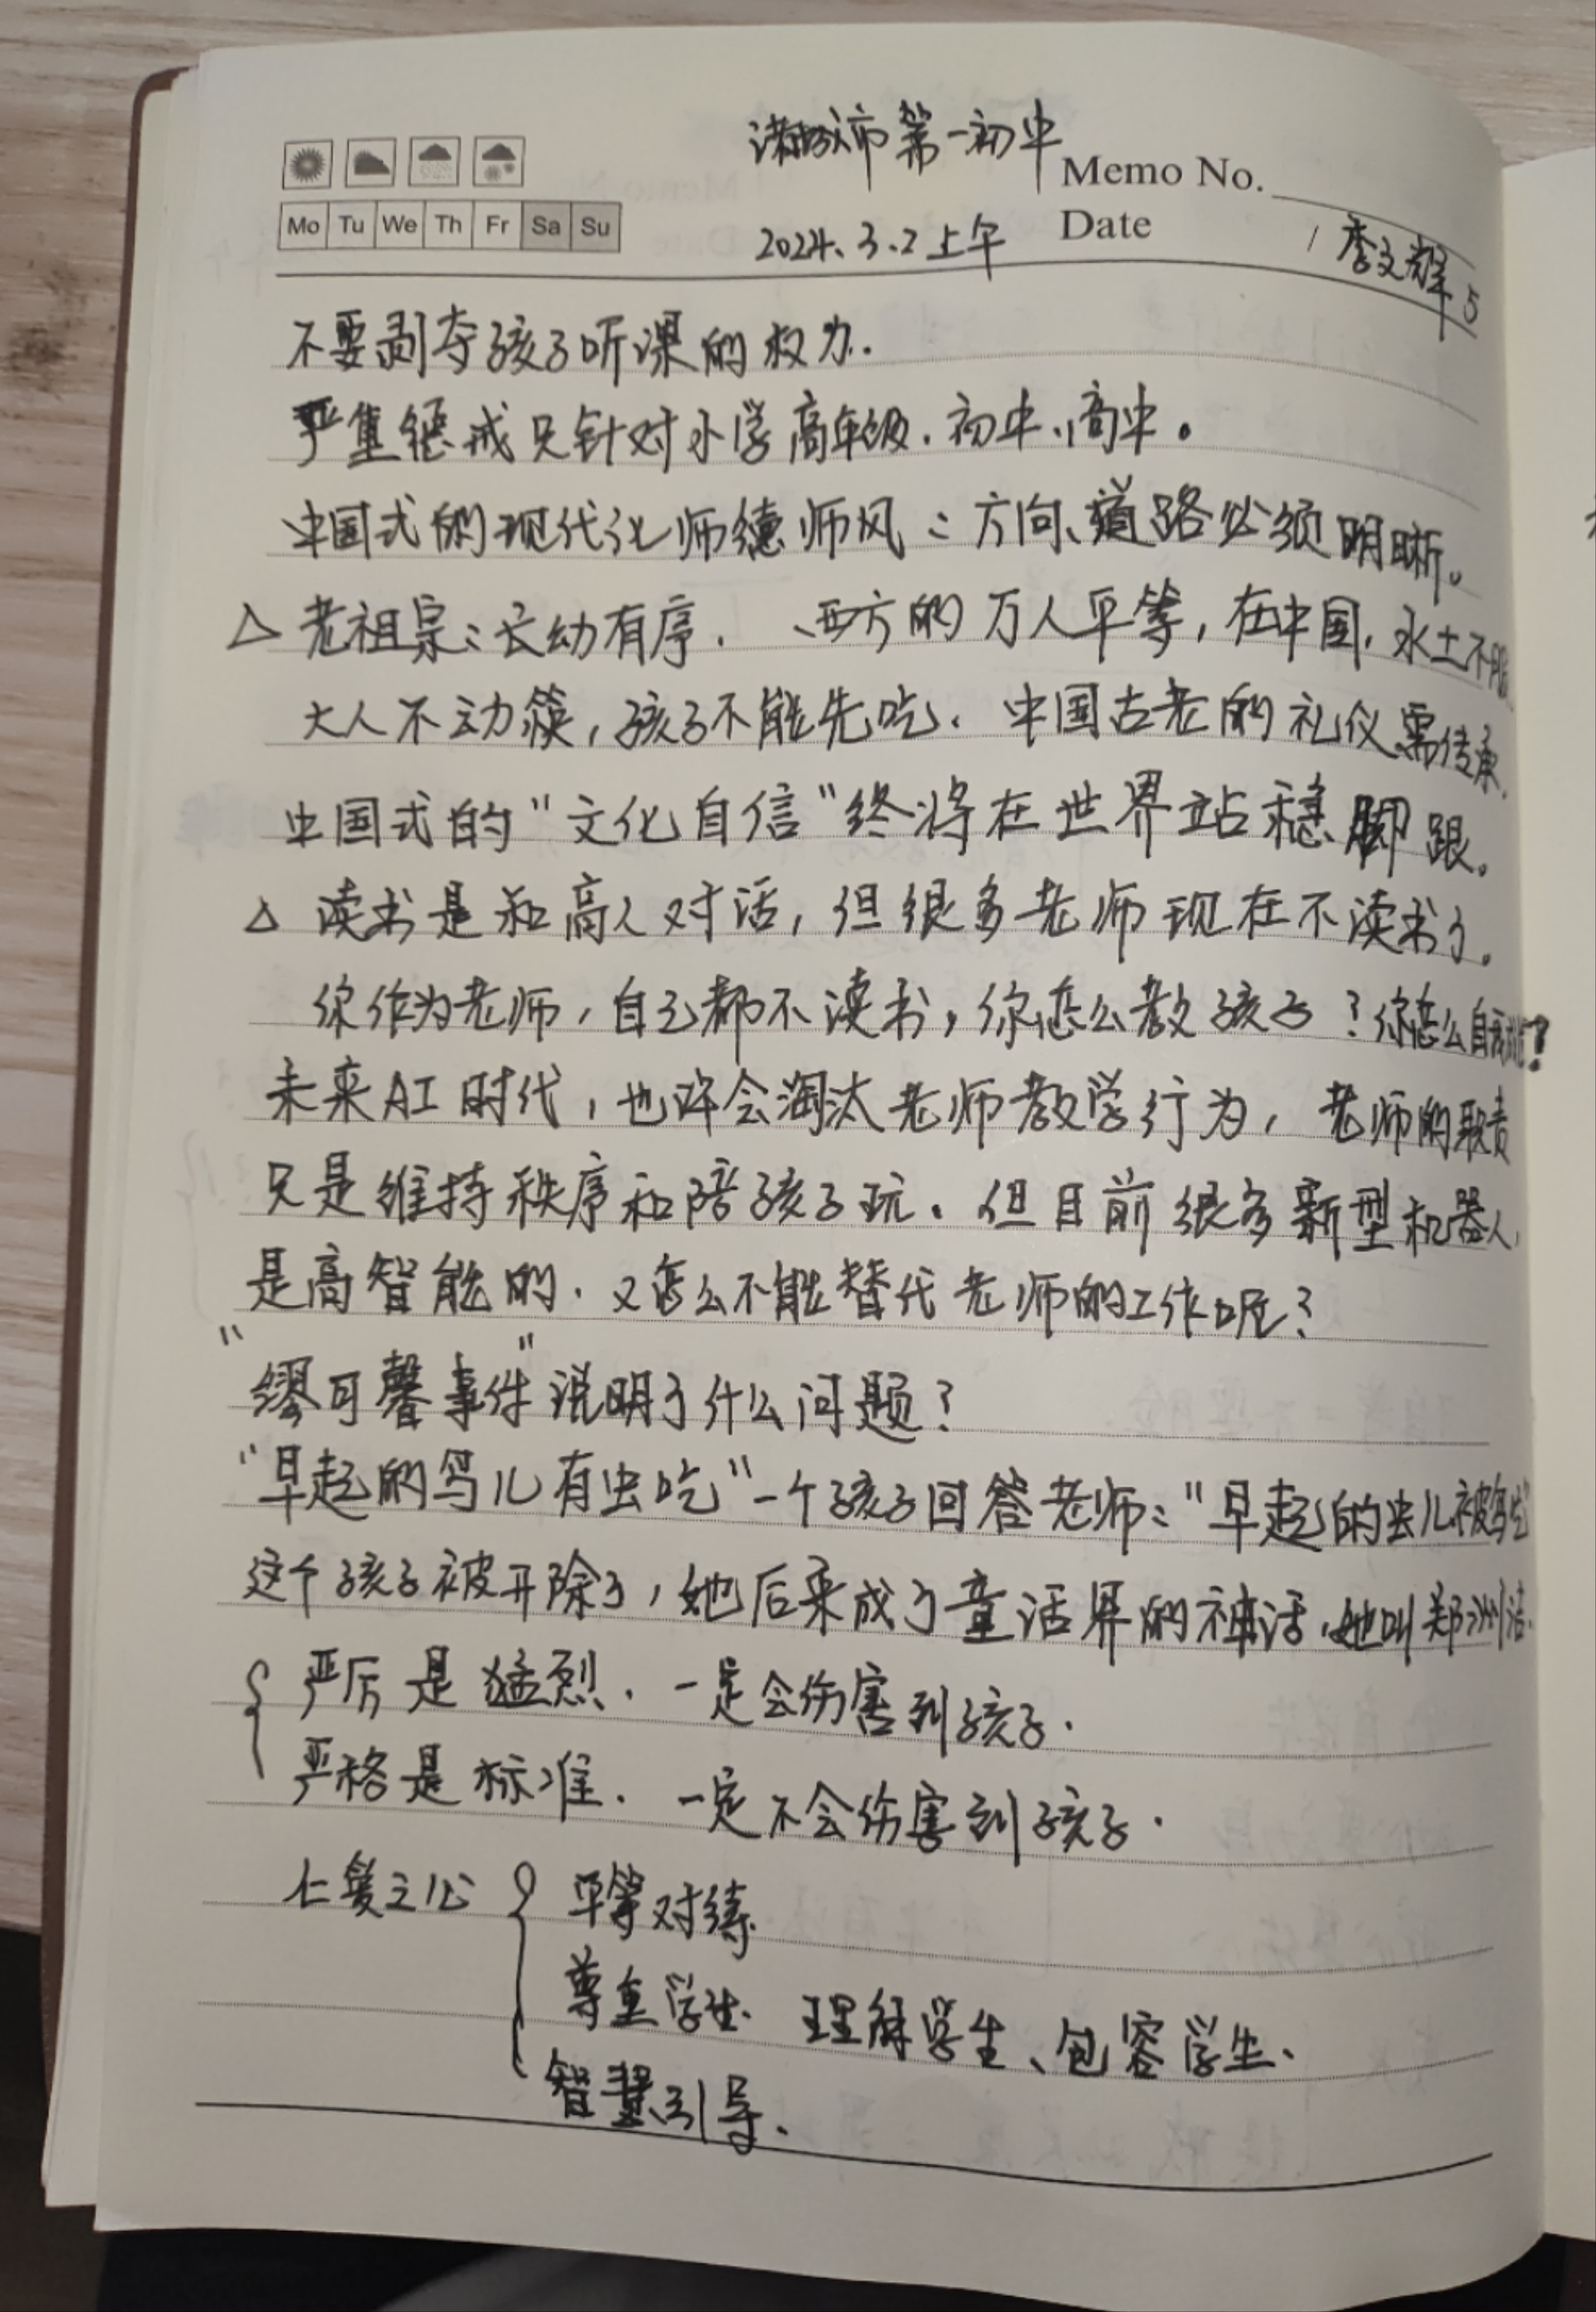 诸城市第一初中
Memo No.
Mo Tu We Th Fr Sa Su
2024.3.2上午
Date
/李文辉 5
不要剥夺孩子听课的权力.
严重惩戒只针对小学高年级、初中、高中。
中国式的现代化师德师风：方向、道路必须明晰。
△ 老祖宗：长幼有序. 、西方的万人平等，在中国，水土不服
大人不动筷，孩子不能先吃. 中国古老的礼仪需传承.
中国式的"文化自信"终将在世界站稳脚跟。
△ 读书是和高人对话，但很多老师现在不读书了。
你作为老师，自己都不读书，你怎么教孩子？你怎么自?
未来AI时代，也许会淘汰老师教学行为，老师的职责
只是维持秩序和陪孩子玩。但目前很多新型机器人，
是高智能的. 又怎么不能替代老师的工作呢？
"缪可馨事件"说明了什么问题？
"早起的鸟儿有虫吃"一个孩子回答老师："早起的虫儿被鸟吃"
这个孩子被开除了，她后来成了童话界的神话，她叫郑洲洁.
严厉是猛烈. 一定会伤害到孩子.
严格是标准. 一定不会伤害到孩子.
仁爱之心 平等对待.
尊重学生. 理解学生、包容学生、
智慧引导.